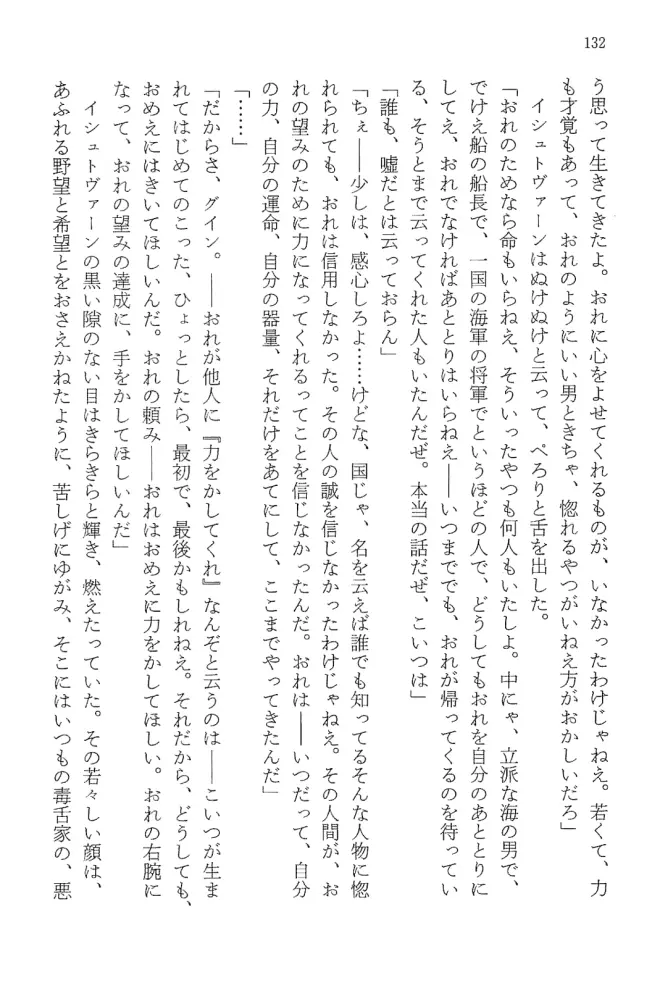 132
う思って生きてきたよ。おれに心をよせてくれるものが、いなかったわけじゃねえ。若くて、力
も才覚もあって、おれのようにいい男ときちゃ、惚れるやつがいねえ方がおかしいだろ」
イシュトヴァーンはぬけぬけと云って、ぺろりと舌を出した。
「おれのためなら命もいらねえ、そういったやつも何人もいたしよ。中にゃ、立派な海の男で、
でけえ船の船長で、一国の海軍の将軍でというほどの人で、どうしてもおれを自分のあととりに
してえ、おれでなければあととりはいらねえ――いつまででも、おれが帰ってくるのを待ってい
る、そうとまで云ってくれた人もいたんだぜ。本当の話だぜ、こいつは」
「誰も、嘘だとは云っておらん」
「ちぇ――少しは、感心しろよ……けどな、国じゃ、名を云えば誰でも知ってるそんな人物に惚
れられても、おれは信用しなかった。その人の誠を信じなかったわけじゃねえ。その人間が、お
れの望みのために力になってくれるってことを信じなかったんだ。おれは――いつだって、自分
の力、自分の運命、自分の器量、それだけをあてにして、ここまでやってきたんだ」
「……」
「だからさ、グイン。――おれが他人に『力をかしてくれ』なんぞと云うのは――こいつが生ま
れてはじめてのこった、ひょっとしたら、最初で、最後かもしれねえ。それだから、どうしても、
おめえにはきいてほしいんだ。おれの頼み――おれはおめえに力をかしてほしい。おれの右腕に
なって、おれの望みの達成に、手をかしてほしいんだ」
イシュトヴァーンの黒い隙のない目はきらきらと輝き、燃えたっていた。その若々しい顔は、
あふれる野望と希望とをおさえかねたように、苦しげにゆがみ、そこにはいつもの毒舌家の、悪